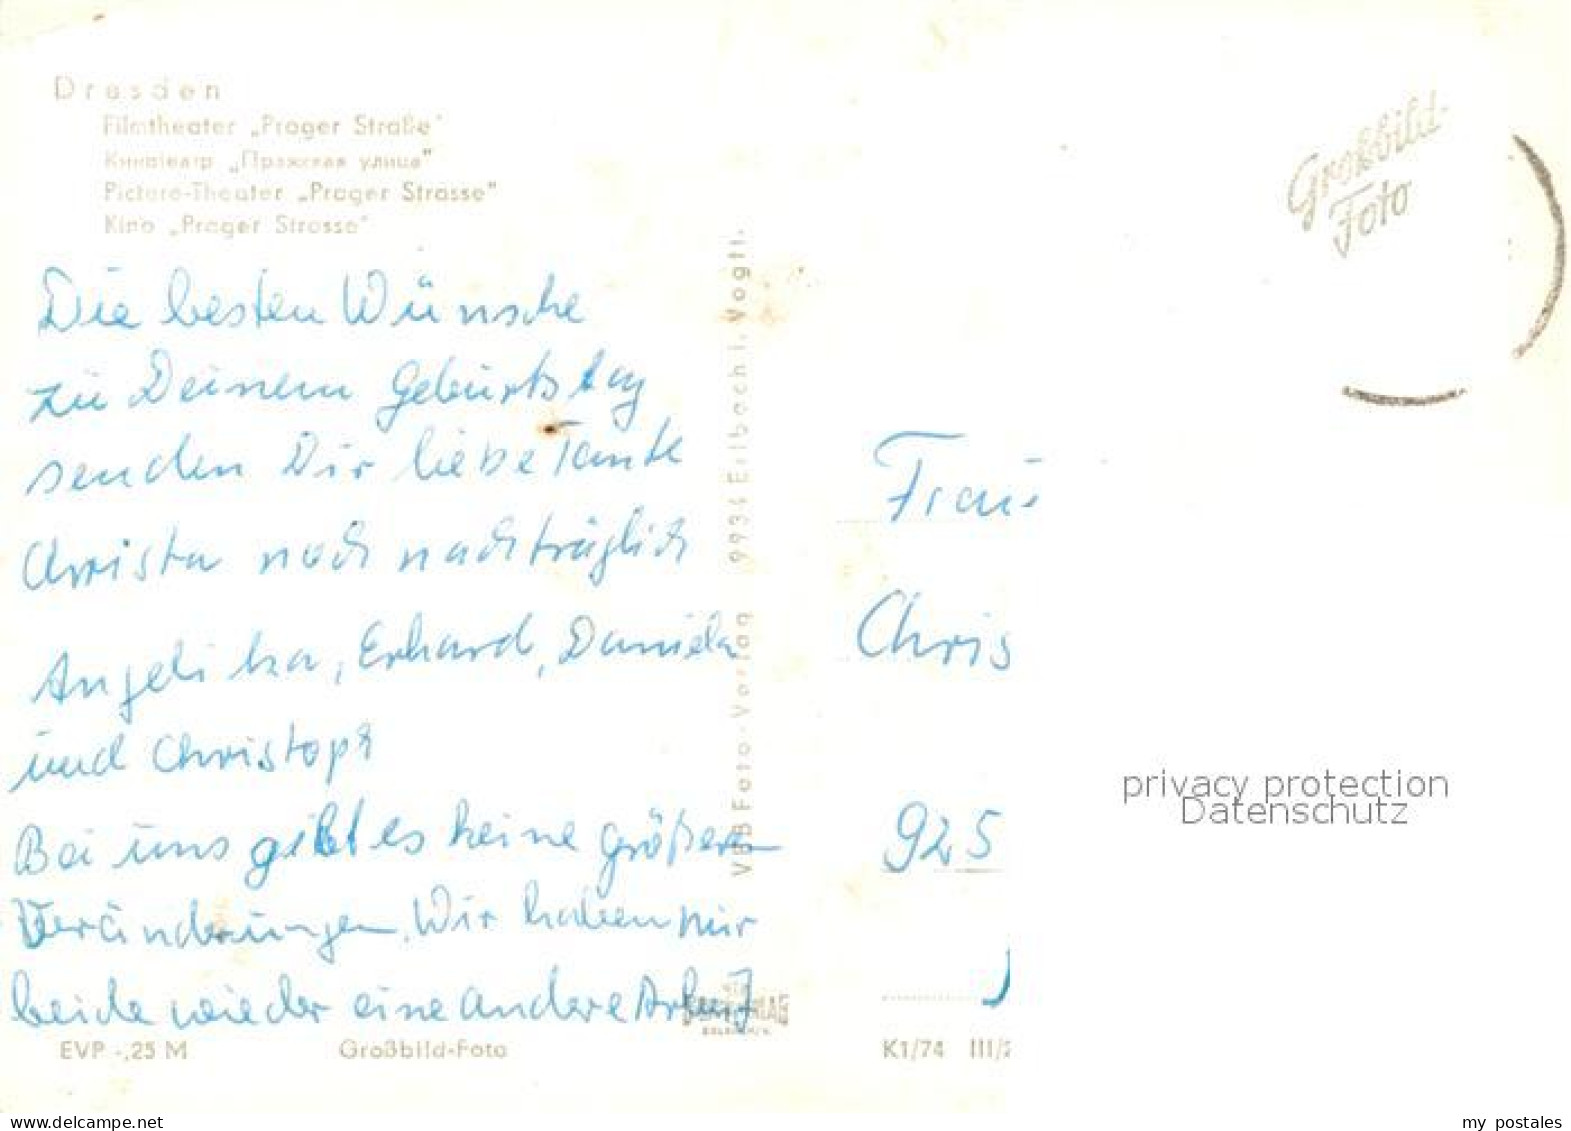 Dresden
Filmtheater „Prager Straße"
Кинотеатр „Пражская улица"
Picture-Theater „Prager Strasse"
Kino „Prager Strasse"
Die besten Wünsche
zu Deinem Geburtstag
senden Dir liebe Tante
Christa noch nachträglich
Angelika, Erhard, Daniela
und Christoph
Bei uns gibt es keine größeren
Veränderungen. Wir haben nur
beide wieder eine andere Arbeit
EVP -,25 M
Großbild-Foto
VEB Foto-Verlag 9934 Erlbach i. Vogtl.
Großbild-
Foto
Frau
Chris
925
K1/74 III/2
privacy protection
Datenschutz
www.delcampe.net
my_postales